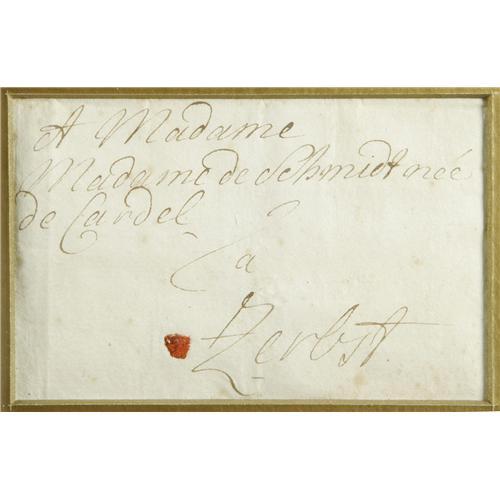 A Madame
Madame de Schmidt née
de Cardel
a
Zerbst.